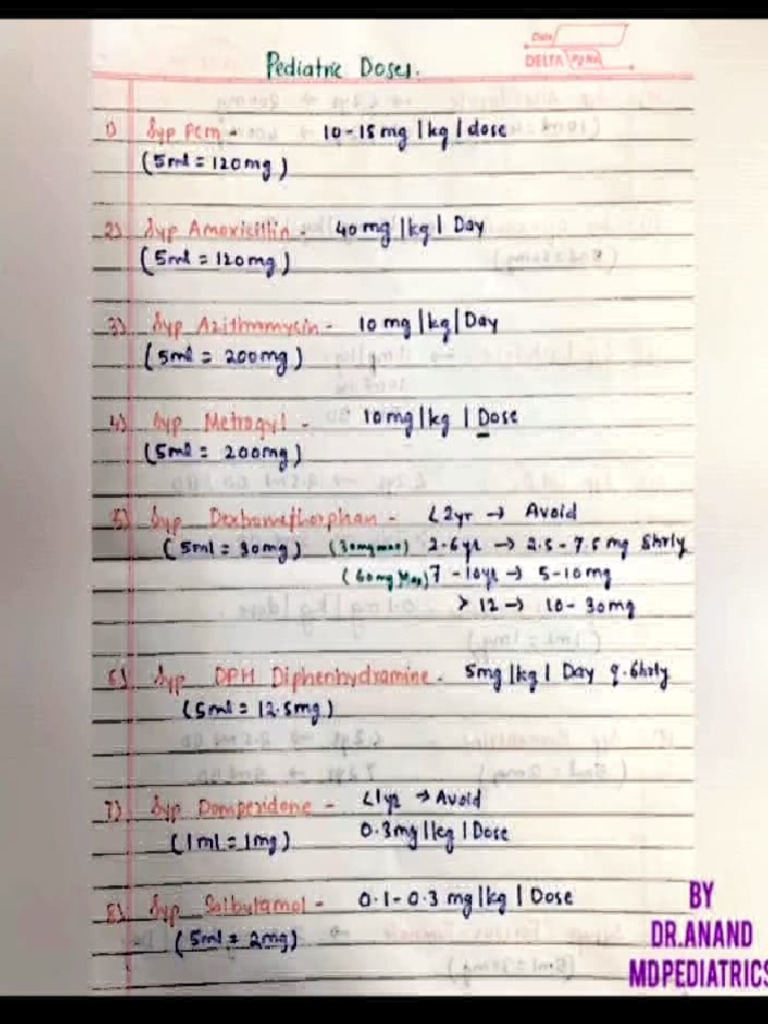 Date
DELTA Pg No
Pediatric Doses.
1) Syp PCM - 10-15mg/kg/dose
(5ml = 120mg)
2) Syp Amoxicillin - 40mg/kg/Day
(5ml = 120mg)
3) Syp Azithromycin - 10mg/kg/Day
(5ml = 200mg)
4) Syp Metrogyl - 10mg/kg/Dose
(5ml = 200mg)
5) Syp Dextromethorphan - <2yr → Avoid
(5ml = 30mg) (30mg max) 2-6yr → 2.5-7.5mg 8hrly
(60mg Max) 7-10yr → 5-10mg
>12 → 10-30mg
6) Syp DPH Diphenhydramine - 5mg/kg/Day q.6hrly
(5ml = 12.5mg)
7) Syp Domperidone - <1yr → Avoid
(1ml = 1mg) 0.3mg/kg/Dose
8) Syp Salbutamol - 0.1-0.3mg/kg/Dose
(5ml = 2mg)
BY
DR.ANAND
MDPEDIATRICS